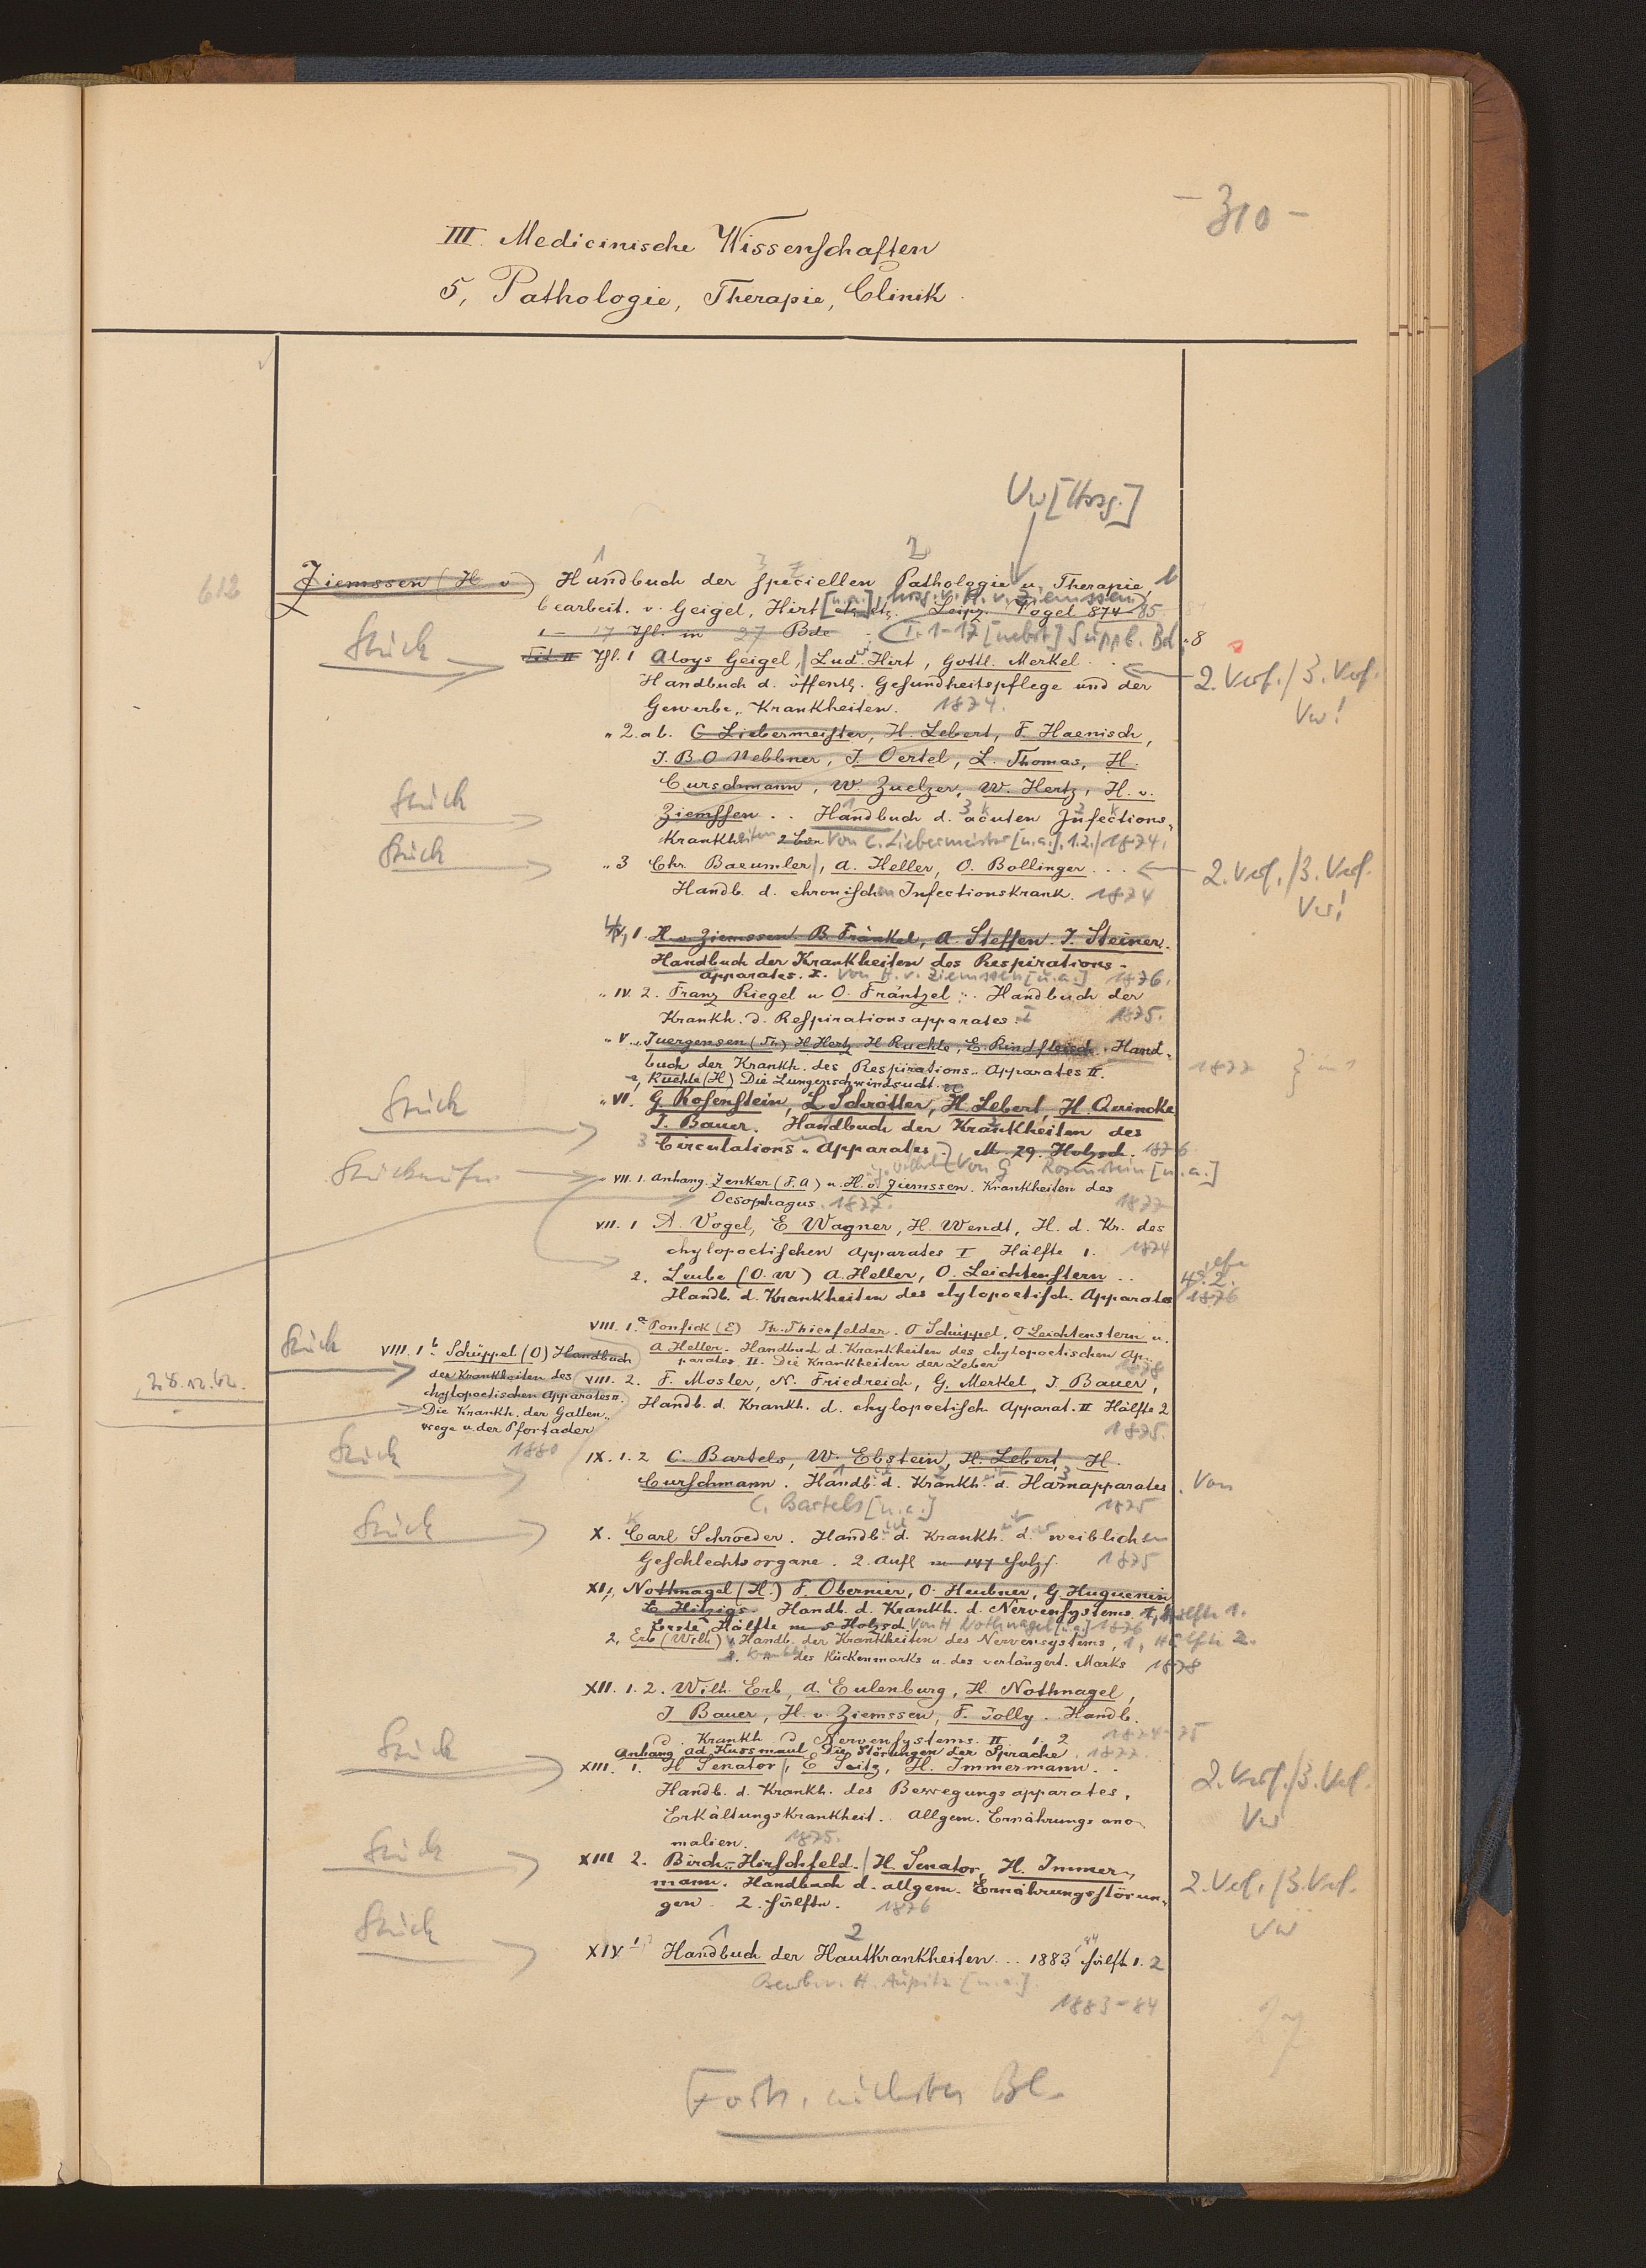 - 310 -
III. Medicinische Wissenschaften
5, Pathologie, Therapie, Clinik.
Vw [Hrsg.]
1 3 2
612 Ziemssen (H v) Handbuch der speciellen Pathologie u. Therapie, 1
bearbeit. v. Geigel, Hirt [u.a.], hrsg. v. H. v. Ziemssen Leipz. Vogel 874-85.
1 - 17 Thl. in 27 Bde T. 1-17 [nebst] Suppl. Bd. 8
Stück Thl. 1 Aloys Geigel, Lud. Hirt, Gottl. Merkel . . 2. Verf. / 3. Verf.
Handbuch d. öffentl. Gesundheitspflege und der
Gewerbe-Krankheiten. 1874. Vw!
" 2. a b. C Liebermeister, H. Lebert, F. Haenisch,
J. B O Hebbner, J. Oertel, L. Thomas, H.
Curschmann, W. Zuelzer, W. Hertz, H. v.
Stück Ziemssen . . Handbuch d. acuten Infections-
Krankheiten 2 Bde Von C. Liebermeister [u.a.]. 1.2. 1874.
Stück " 3 Chr. Baeumler, A. Heller, O. Bollinger . . . 2. Verf. / 3. Verf.
Handb. d. chronischen Infectionskrank. 1874 Vw!
IV, 1. H. v. Ziemssen. B. Fränkel, A. Steffen. J. Steiner.
Handbuch der Krankheiten des Respirations-
apparates. I. Von H. v. Ziemssen [u.a.] 1876.
" IV. 2. Franz Riegel u O. Fräntzel . . Handbuch der
Krankh. d. Respirationsapparates. I 1875.
" V. Juergensen (Th.) H Hertz. H Ruehle, E. Rindfleisch. Hand-
buch der Krankh. des Respirations-Apparates II. 1877
2, Ruehle (H) Die Lungenschwindsucht.
Stück " VI. G. Rosenstein, L Schrötter, H. Lebert, H. Quincke
J. Bauer. Handbuch der Krankheiten des
3 Circulations-Apparates M. 29. Holzsch. 1876
Von G Rosenstein [u.a.]
" VII. 1. Anhang. Zenker (F. A) u. H. v. Ziemssen. Krankheiten des
Oesophagus. 1877. 1877
VII. 1 A. Vogel, E Wagner, H. Wendt, H. d. Kr. des
chylopoetischen Apparates I Hälfte 1. 1874
2. Leube (O. W) A. Heller, O. Leichtenstern . .
Handb. d. Krankheiten des chylopoetisch. Apparates 1876
VIII. 1. a Ponfick (E) Th. Thierfelder. O Schüppel, O Leichtenstern u.
A. Heller. Handbuch d. Krankheiten des chylopoetischen Ap-
parates II. Die Krankheiten der Leber 1878
Stück VIII. 1 b. Schüppel (O) Handbuch
der Krankheiten des
chylopoetischen Apparates II.
Die Krankh. der Gallen-
wege u. der Pfortader
1880
28.12.62.
VIII. 2. F. Mosler, N. Friedreich, G. Merkel, J. Bauer,
Handb. d. Krankh. d. chylopoetisch. Apparat. II Hälfte 2
1875.
Stück IX. 1. 2 C. Bartels, W. Ebstein, H. Lebert, H.
Curschmann. Handb. d. Krankh. d. Harnapparates. Von
C. Bartels [u.a.] 1875
Stück X. Carl Schroeder. Handb. d. Krankh. d. weiblichen
Geschlechtsorgane. 2. Aufl m 147 Holzs. 1875
XI, Nothnagel (H.) F. Obernier, O. Heubner, G Huguenin
E Hitzigs. Handb. d. Krankh. d. Nervensystems. 1, Hälfte 1.
Erste Hälfte m 8 Holzsch. Von H Nothnagel [u.a.] 1876
2, Erb (Wilh) Handb. der Krankheiten des Nervensystems, 1, Hälfte 2.
des Rückenmarks u. des verlängert. Marks 1878
XII. 1. 2. Wilh. Erb, A. Eulenburg, H. Nothnagel,
J Bauer, H. v. Ziemssen, F. Jolly. Handb.
d. Krankh d Nervensystems. II 1. 2 1874-75
Anhang Ad. Kussmaul Die Störungen der Sprache. 1877.
Stück XIII. 1. H Senator, E Seitz, H. Immermann. . 2. Verf. / 3. Verf.
Handb. d. Krankh. des Bewegungsapparates, Vw
Erkältungskrankheit. Allgem. Ernährungsano-
malien. 1875.
Stück XIII 2. Birch-Hirschfeld. H. Senator, H. Immer-
mann. Handbuch d. allgem. Ernährungsstörun- 2. Verf. / 3. Verf.
gen. 2. Hälfte. 1876 Vw
Stück 1 2
XIV 1 Handbuch der Hautkrankheiten . . . 1883 84 Hälft 1. 2
Bearb. v. H. Aupitz [u.a.].
1883-84
27
Forts. nächstes Bl.